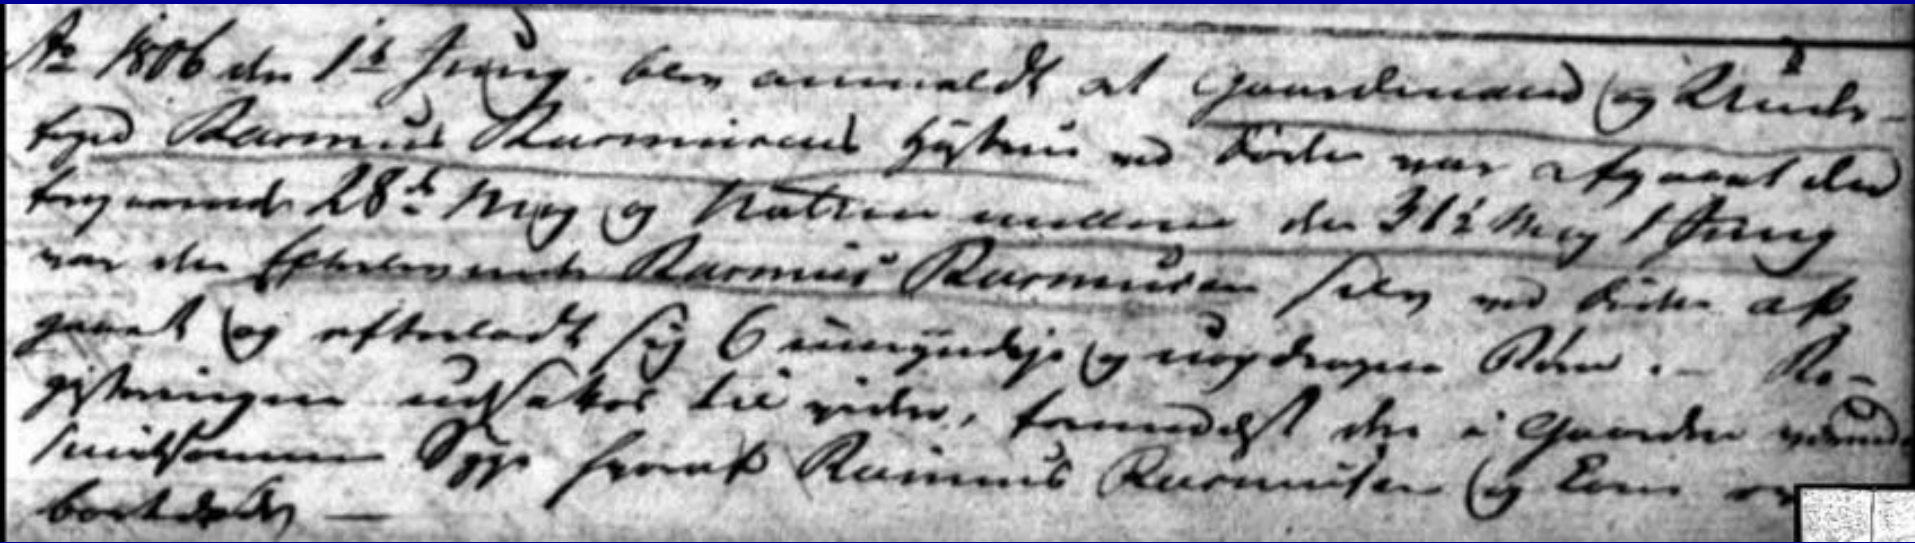 Ao 1806 den 1te Juny blev anmeldt at Gaardmand og Ride-
foged Rasmus Rasmusens Hustrue ved Döden var afgaaet den
foregaaende 28de May og Natten mellem den 31te May 1 Juny
var den Efterlevende Rasmus Rasmusen selv ved Döden af-
gaaet og efterladt sig 6 umyndige og uopdragne Börn. — Re-
gistreringen udsættes til videre, formedelst den i Gaarden værende
smitsomme Syge hvoraf Rasmus Rasmusen og Kone er
bortdöde —